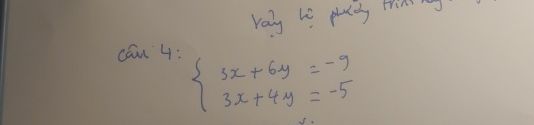 Vậy hệ phương trình
câu 4:
3x + 6y = -9
3x + 4y = -5